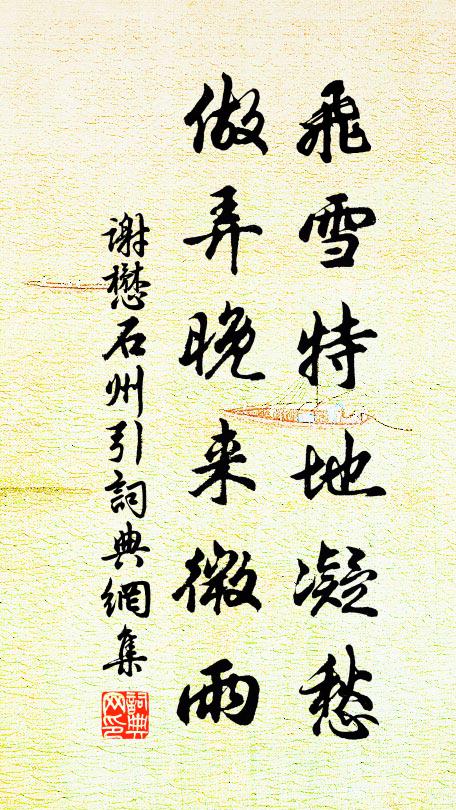 飛雪特地凝愁
做弄晚来微雨
謝懋石州引詞典網集
詞典網印